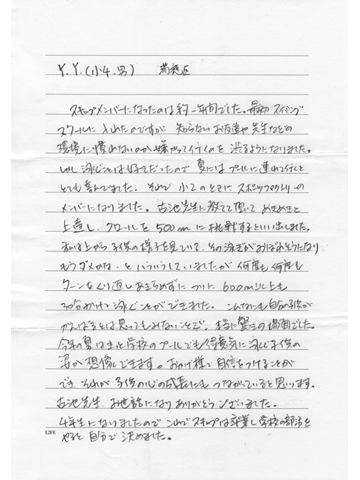 Y.Y.(小4.男) 葛飾区
スキップメンバーになったのは約一年前でした。最初スイミング
スクールに入れたのですが 知らないお友達や先生などの
環境に慣れないのか嫌がって行くのを渋るようになりました。
しかし泳ぐことは好きだったので夏にはプールに連れて行くと
とても喜んでました。それで小3のときにスポーツ
メンバーになりました。古池先生に教えて頂いてめきめきと
上達し、クロールを500mに挑戦するといい出しました。
私は上から子供の様子を見ていて、その泳ぎがおぼれそうになり
もうダメかな…とハラハラしていましたが何度も何度も
ターンをくり返しあきらめずについに600m以上も
30分かけて泳ぐことができました。こんなにも自分の子供が
がんばるとは思ってもみないことで、本当に驚きの場面でした。
今年の夏はきっと学校のプールでも得意気に泳ぐ子供の
姿が想像できます。おかげ様で自信をつけることが
でき それが子供の心の成長にもつながっていると思います。
古池先生 お世話になりありがとうございました。
4年生になりましたので これでスキップは卒業し学校の部活を
やると自分で決めました。
LIFE